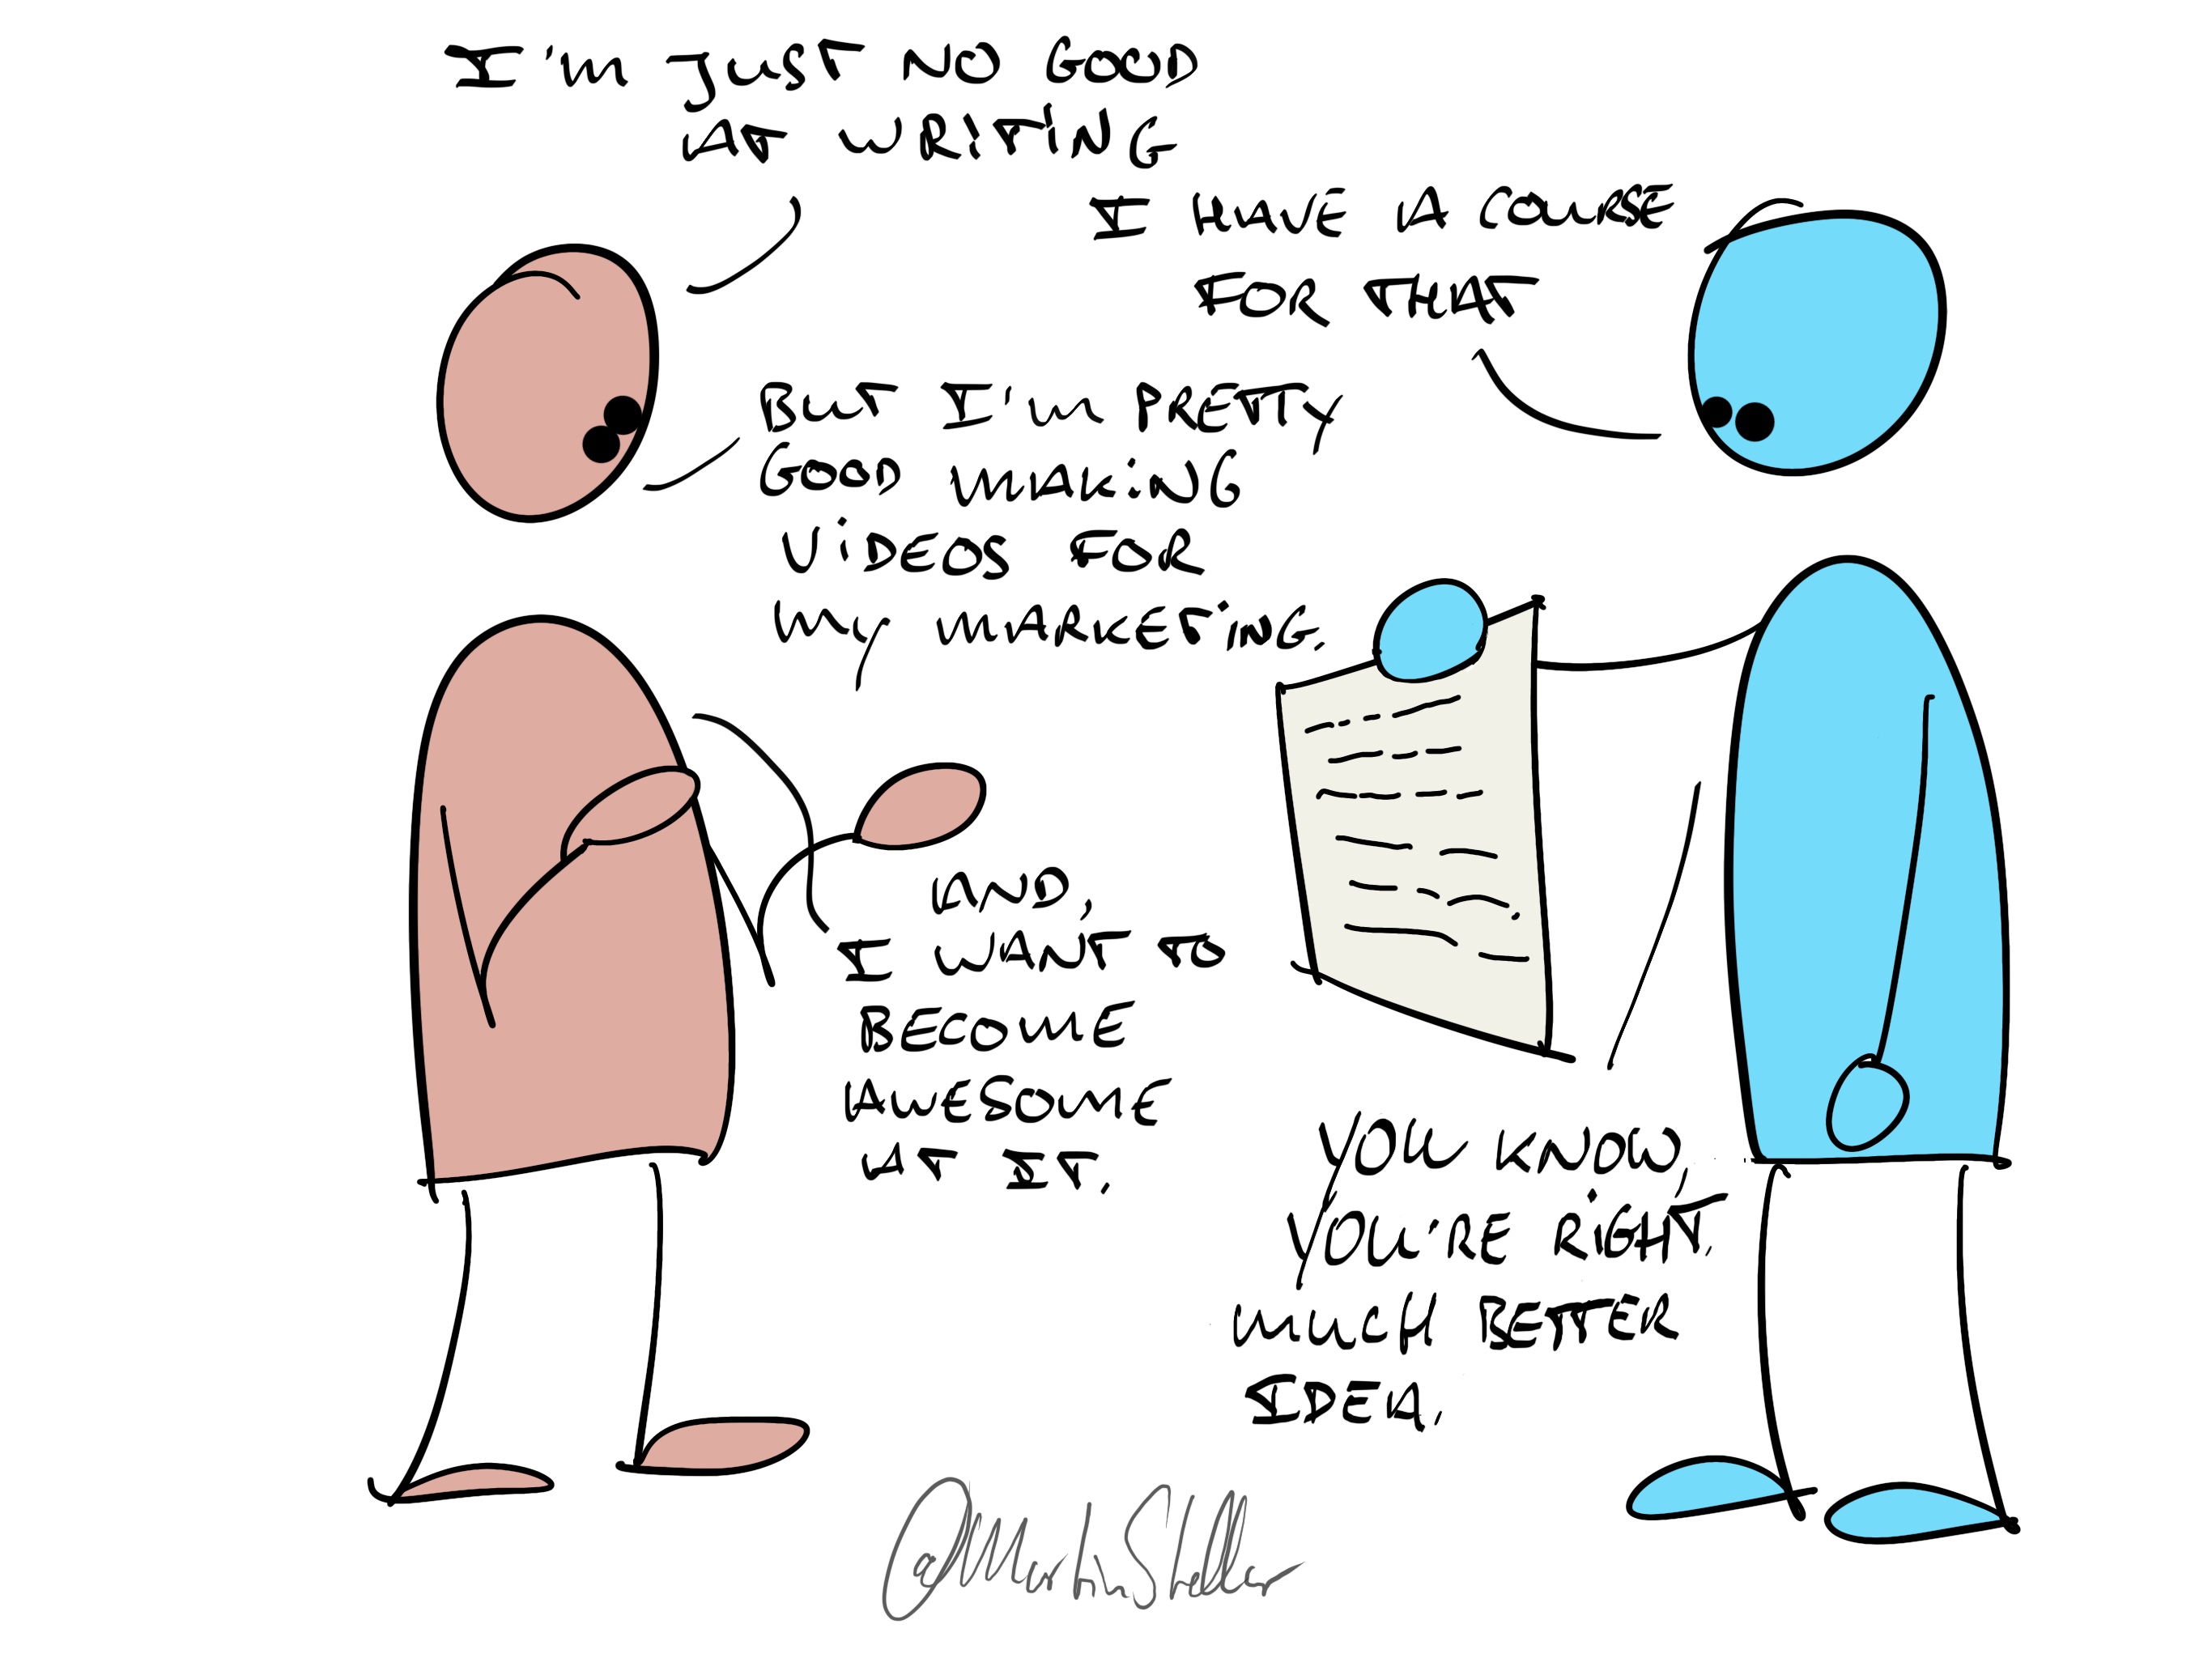 I'm JUST NO GOOD
AT WRITING
I HAVE A COURSE
FOR THAT
BUT I'm PRETTY
GOOD MAKING
VIDEOS FOR
MY MARKETING.
AND,
I WANT TO
BECOME
AWESOME
AT IT.
YOU KNOW,
YOU'RE RIGHT.
MUCH BETTER
IDEA.
@MartinStellar